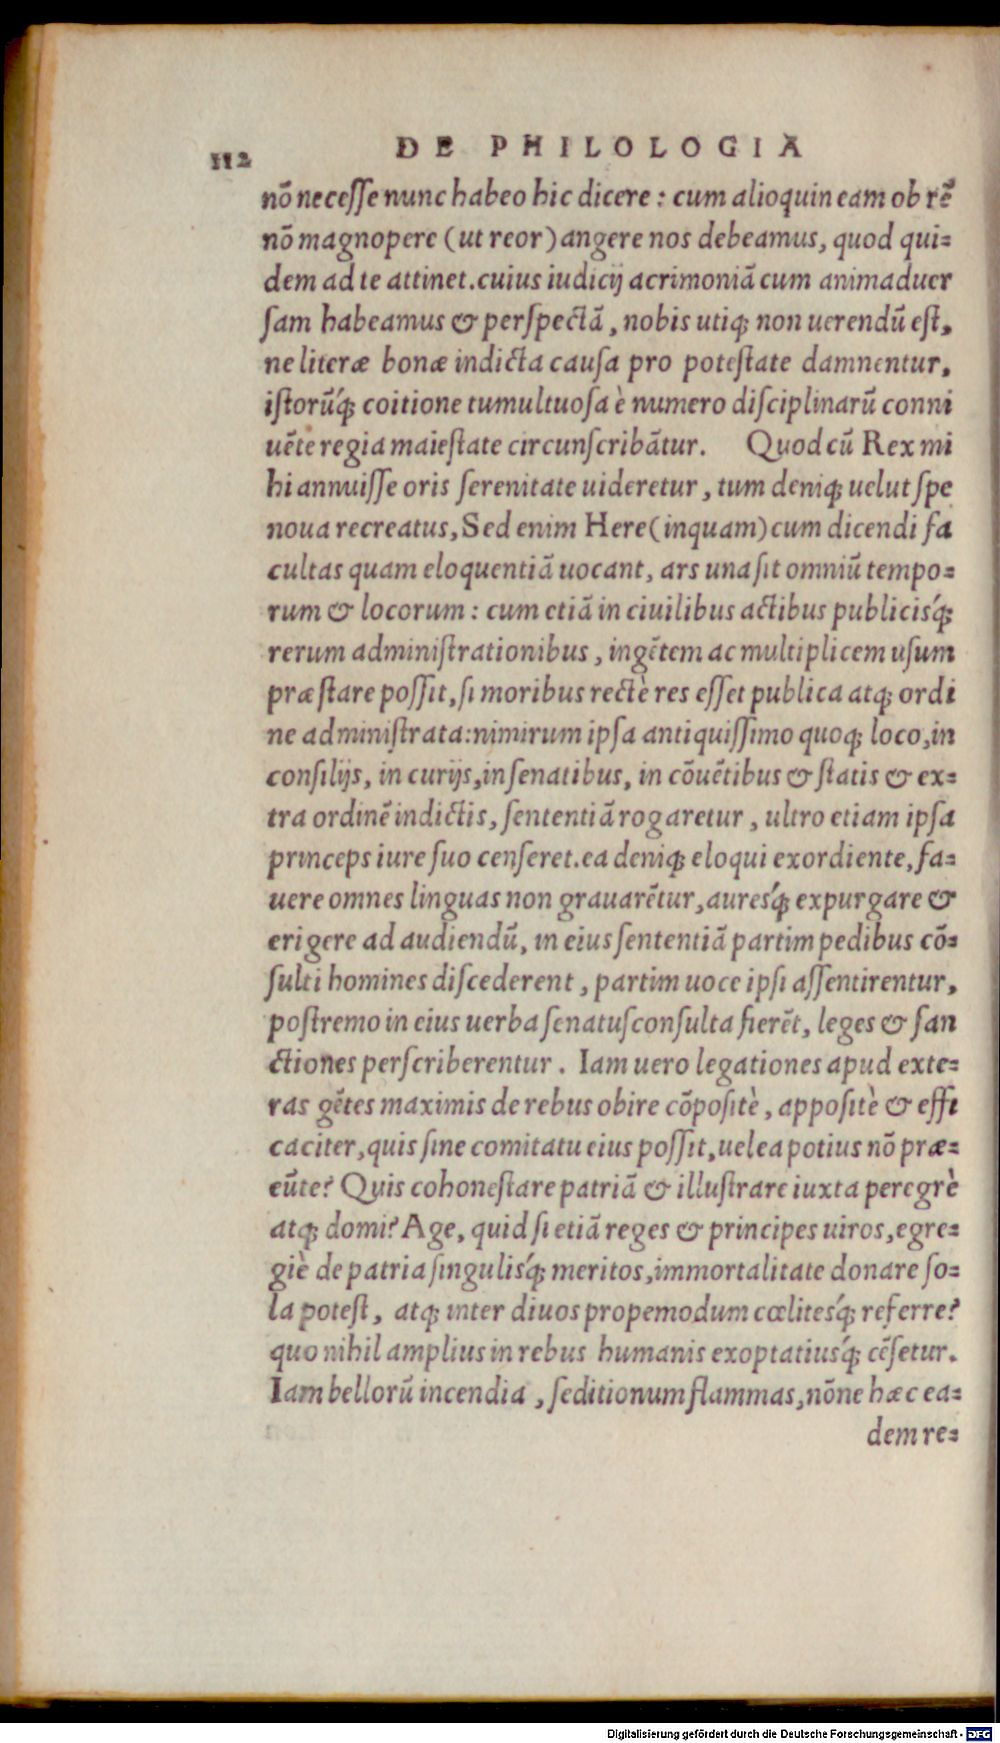 112 DE PHILOLOGIA
nō neceſſe nunc habeo hic dicere : cum alioquin eam ob rē
nō magnopere (ut reor) angere nos debeamus, quod qui=
dem ad te attinet. cuius iudicij acrimoniā cum animaduer
ſam habeamus & perſpectā, nobis utiq; non uerendū eſt,
ne literæ bonæ indicta cauſa pro poteſtate damnentur,
iſtorūq́; coitione tumultuoſa è numero diſciplinarū conni
uēte regia maieſtate circunſcribātur. Quod cū Rex mi
hi annuiſſe oris ſerenitate uideretur, tum deniq; uelut ſpe
noua recreatus, Sed enim Here (inquam) cum dicendi fa
cultas quam eloquentiā uocant, ars una ſit omniū tempo=
rum & locorum : cum etiā in ciuilibus actibus publicisq́;
rerum adminiſtrationibus, ingētem ac multiplicem uſum
præſtare poſſit, ſi moribus rectè res eſſet publica atq; ordi
ne adminiſtrata: nimirum ipſa antiquiſſimo quoq; loco, in
conſilijs, in curijs, in ſenatibus, in cōuētibus & ſtatis & ex=
tra ordinē indictis, ſententiā rogaretur, ultro etiam ipſa
princeps iure ſuo cenſeret. ea deniq; eloqui exordiente, fa=
uere omnes linguas non grauarētur, auresq́; expurgare &
erigere ad audiendū, in eius ſententiā partim pedibus cō=
ſulti homines diſcederent, partim uoce ipſi aſſentirentur,
poſtremo in eius uerba ſenatuſconſulta fierēt, leges & ſan
ctiones perſcriberentur. Iam uero legationes apud exte=
ras gētes maximis de rebus obire cōpoſitè, appoſitè & effi
caciter, quis ſine comitatu eius poſſit, uel ea potius nō præ=
eūte? Quis cohoneſtare patriā & illuſtrare iuxta peregrè
atq; domi? Age, quid ſi etiā reges & principes uiros, egre=
giè de patria ſingulisq́; meritos, immortalitate donare ſo=
la poteſt, atq; inter diuos propemodum cœlitesq́; referre?
quo nihil amplius in rebus humanis exoptatiusq́; cēſetur.
Iam bellorū incendia, ſeditionum flammas, nōne hæc ea=
dem re=
Digitalisierung gefördert durch die Deutsche Forschungsgemeinschaft - DFG